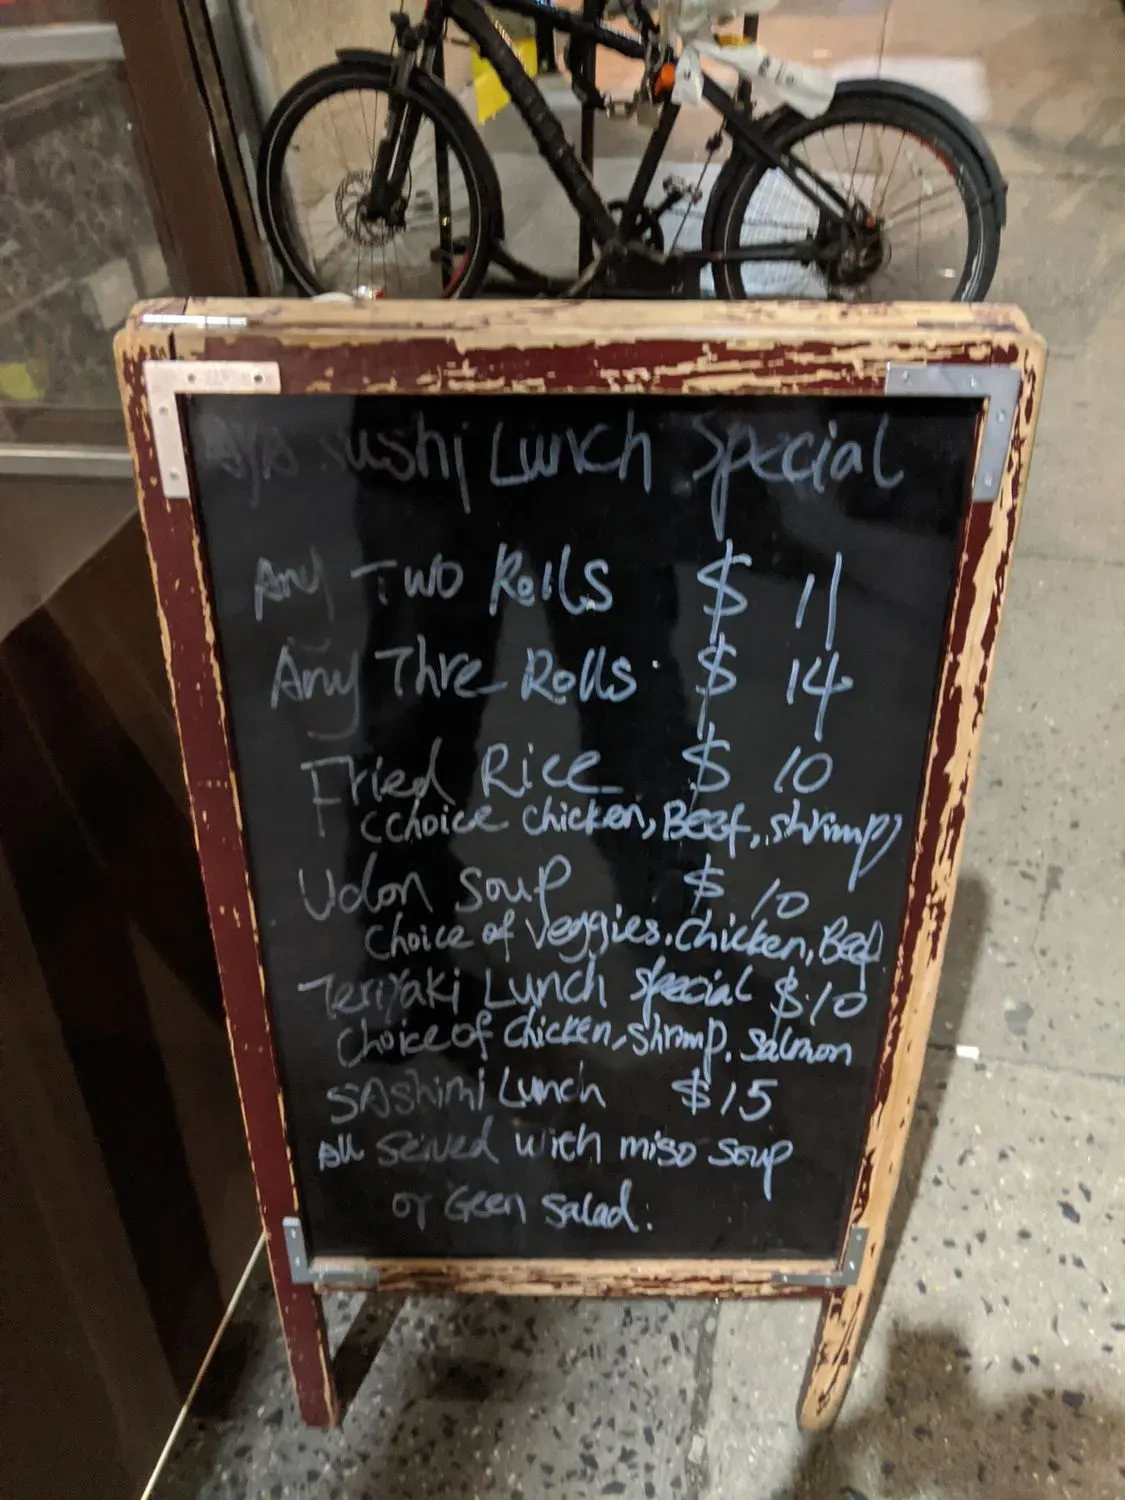 Aya Sushi Lunch Special
Any Two Rolls $ 11
Any Thre Rolls $ 14
Fried Rice $ 10
(choice chicken, Beef, shrimp)
Udon Soup $ 10
choice of Veggies, chicken, Beef
Teriyaki Lunch Special $10
choice of chicken, shrimp, salmon
SAshimi Lunch $15
All Served with miso soup
or Geen Salad.